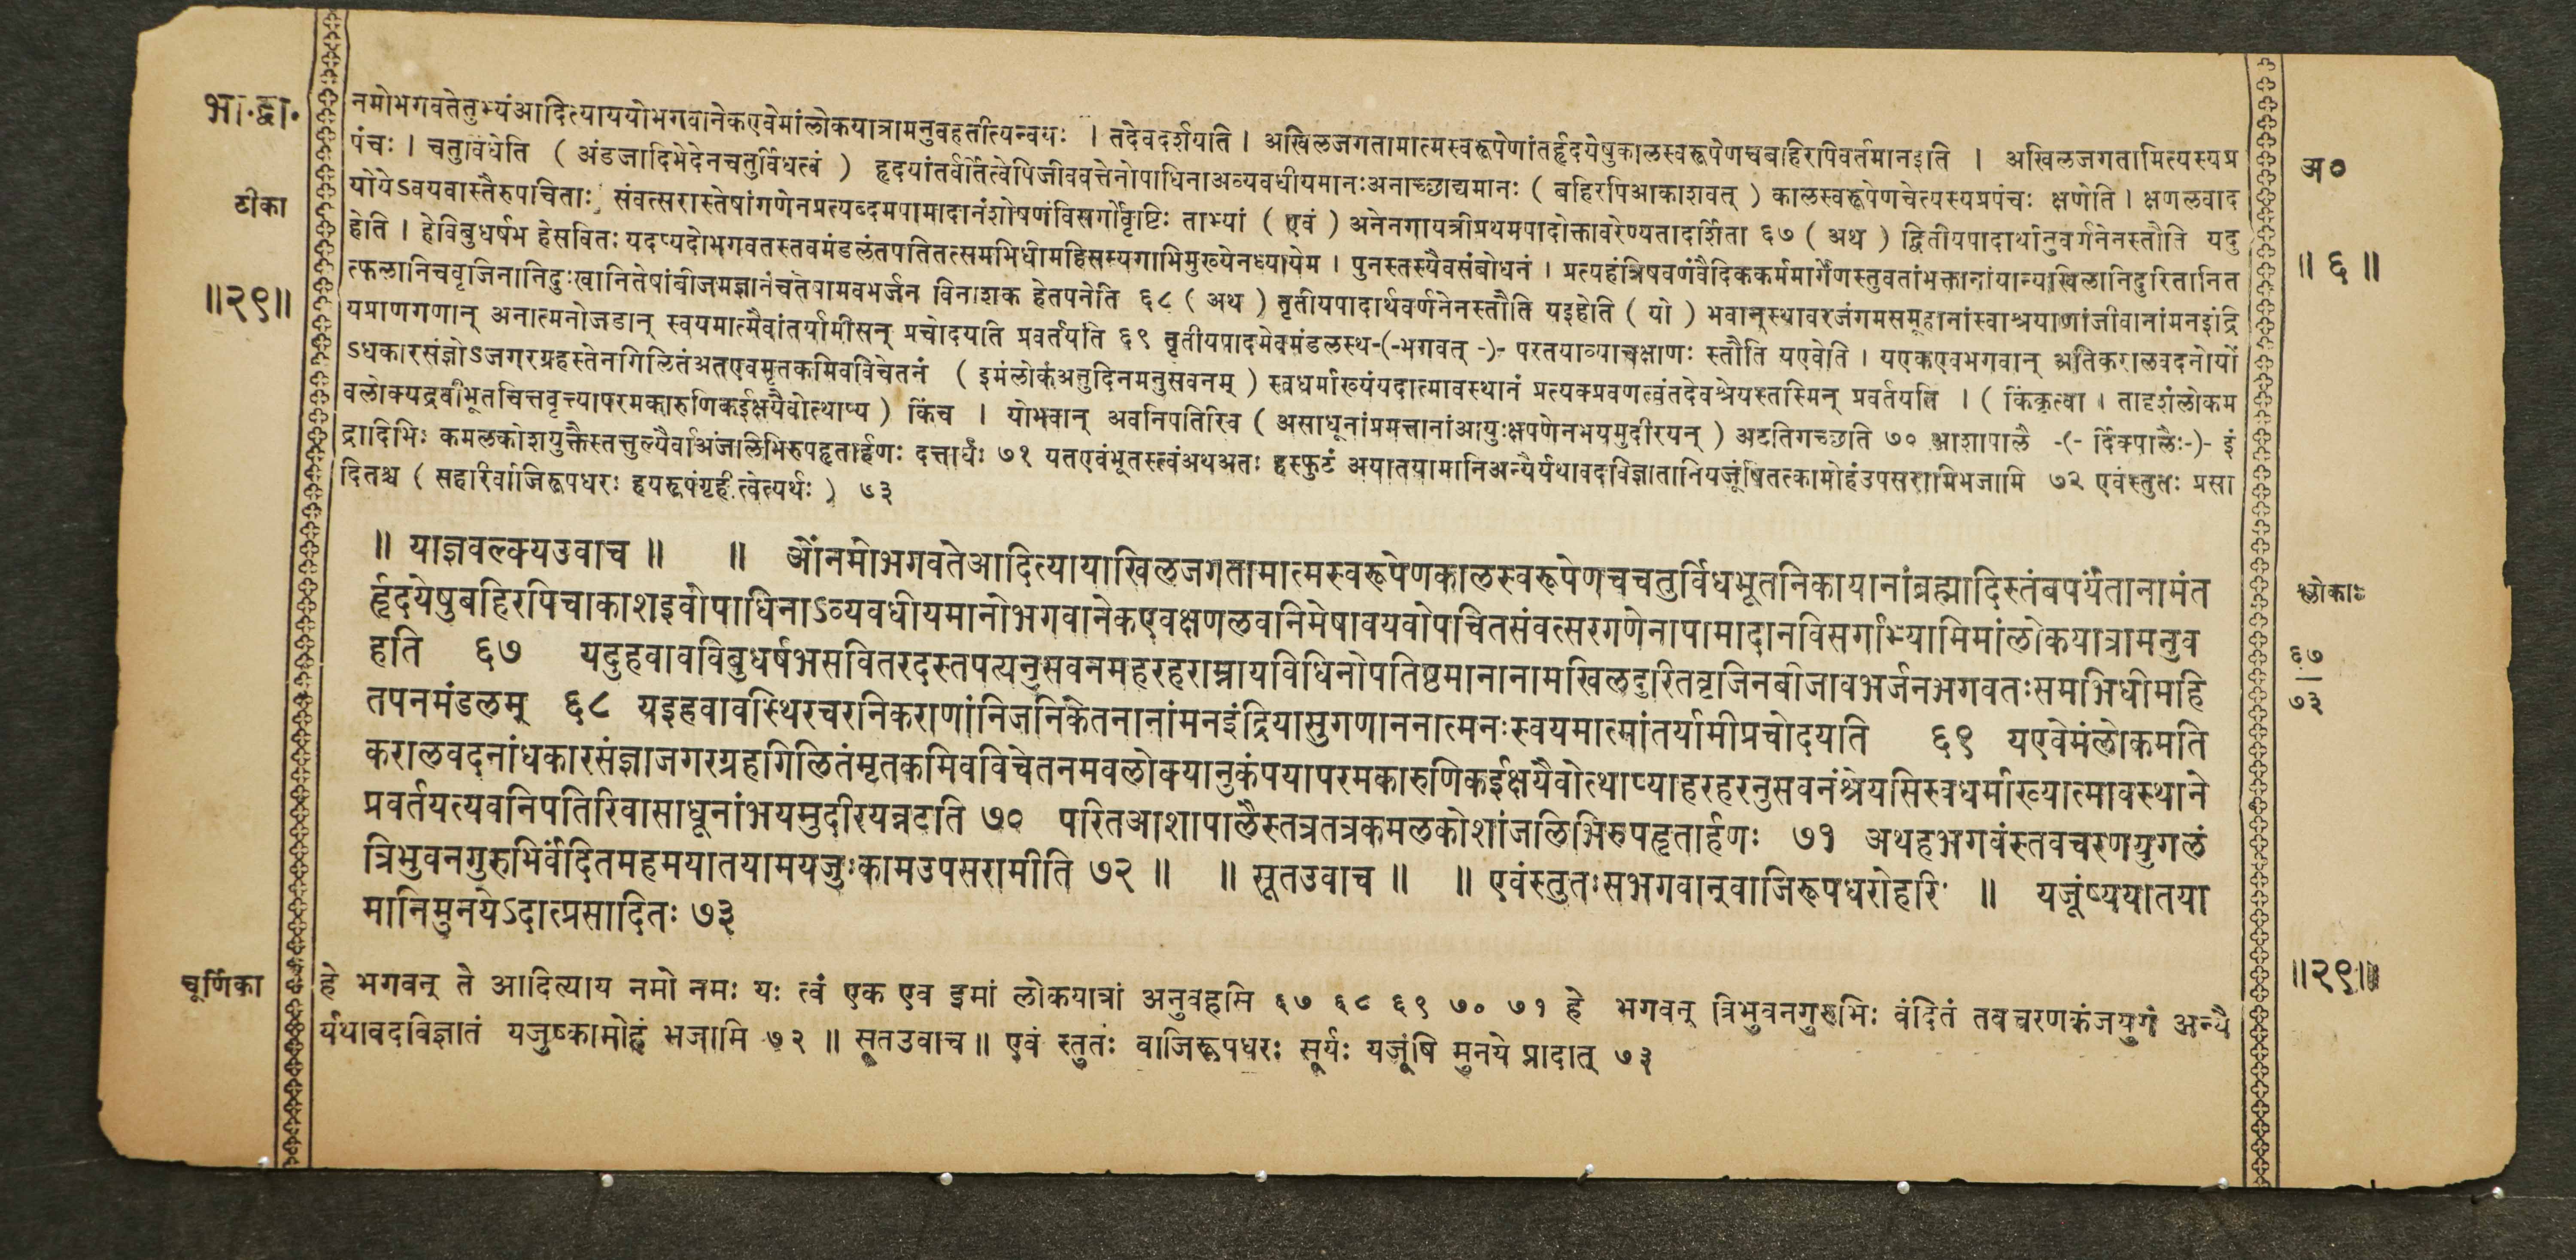 भा.द्वा.
टीका
॥२९॥
नमोभगवतेतुभ्यंआदित्याययोभगवानेकएवेमांलोकयात्रामनुवहतीत्यन्वयः । तदेवदर्शयति । अखिलजगतामात्मस्वरूपेणांतर्हृदयेषुकालस्वरूपेणचबाहिरपिवर्तमानइति । अखिलजगतामित्यस्यप्र
पंचः । चतुर्विधेति ( अंडजादिभेदेनचतुर्विधत्वं ) हृदयांतर्वर्तित्वेपिजीववत्तेनोपाधिनाअव्यवधीयमानःअनाच्छाद्यमानः ( बहिरपिआकाशवत् ) कालस्वरूपेणचेत्यस्यप्रपंचः क्षणेति । क्षणलवाद
योयेऽवयवास्तैरुपचिताः संवत्सरास्तेषांगणेनप्रत्यब्दमपामादानंशोषणंविसर्गोवृष्टिः ताभ्यां ( एवं ) अनेनगायत्रीप्रथमपादोक्तावरेण्यतादर्शिता ६७ ( अथ ) द्वितीयपादार्थानुवर्णनेनस्तौति यदु
हेति । हेविबुधर्षभ हेसवितः यदप्यदोभगवतस्तवमंडलंतपतितत्समभिधीमहिसम्यगाभिमुख्येनध्यायेम । पुनस्तस्यैवसंबोधनं । प्रत्यहंत्रिषवणंवैदिककर्ममार्गेणस्तुवतांभक्तानांयान्यखिलानिदुरितानित
त्फलानिचवृजिनानिदुःखानितेषांबीजमज्ञानंचतेषामवभर्जन विनाशक हेतपनेति ६८ ( अथ ) तृतीयपादार्थवर्णनेनस्तौति यइहेति ( यो ) भवान्स्थावरजंगमसमूहानांस्वाश्रयाणांजीवानांमनइंद्रि
यप्राणगणान् अनात्मनोजडान् स्वयमात्मैवांतर्यामीसन् प्रचोदयति प्रवर्तयति ६९ तृतीयपादमेवमंडलस्थ-(-भगवत् -)- परतयाव्याचक्षाणः स्तौति यएवेति । यएकएवभगवान् अतिकरालवदनोयों
ऽधकारसंज्ञोऽजगरग्रहस्तेनगिलितंअतएवमृतकमिवविचेतनं ( इमंलोकंअनुदिनमनुसवनम् ) स्वधर्माख्यंयदात्मावस्थानं प्रत्यक्प्रवणत्वंतदेवश्रेयस्तस्मिन् प्रवर्तयति । ( किंकृत्वा । तादृशंलोकम
वलोक्यद्रवीभूतचित्तवृत्त्यापरमकारुणिकईक्षयैवोत्थाप्य ) किंच । योभवान् अवनिपतिरिव ( असाधूनांप्रमत्तानांआयुःक्षपणेनभयमुदीरयन् ) अटतिगच्छति ७० आशापालै -(- र्दिक्पालैः-)- इं
द्रादिभिः कमलकोशयुक्तैस्तत्तुल्यैर्वाअंजलिभिरुपहृतार्हणः दत्तार्घः ७१ यतएवंभूतस्त्वंअथअतः हस्फुटं अयातयामानिअन्यैर्यथावदविज्ञातानियजूंषितत्कामोहंउपसरामिभजामि ७२ एवंस्तुतः प्रसा
दितश्च ( सहरिर्वाजिरूपधरः हयरूपंगृहीत्वेत्यर्थः ) ७३
॥ याज्ञवल्क्यउवाच ॥ ॥ ओंनमोभगवतेआदित्यायाखिलजगतामात्मस्वरूपेणकालस्वरूपेणचचतुर्विधभूतनिकायानांब्रह्मादिस्तंबपर्यंतानामंत
र्हृदयेषुबहिरपिचाकाशइवोपाधिनाऽव्यवधीयमानोभगवानेकएवक्षणलवनिमेषावयवोपचितसंवत्सरगणेनापामादानविसर्गाभ्यामिमांलोकयात्रामनुव
हति ६७ यदुहवावविबुधर्षभसवितरदस्तपत्यनुसवनमहरहराम्नायविधिनोपतिष्ठमानानामखिलदुरितवृजिनबीजावभर्जनभगवतःसमभिधीमहि
तपनमंडलम् ६८ यइहवावस्थिरचरनिकराणांनिजनिकेतनानांमनइंद्रियासुगणाननात्मनःस्वयमात्मांतर्यामीप्रचोदयति ६९ यएवेमंलोकमति
करालवदनांधकारसंज्ञाजगरग्रहगिलितंमृतकमिवविचेतनमवलोक्यानुकंपयापरमकारुणिकईक्षयैवोत्थाप्याहरहरनुसवनंश्रेयसिस्वधर्माख्यात्मावस्थाने
प्रवर्तयत्यवनिपतिरिवासाधूनांभयमुदीरयन्नटति ७० परितआशापालैस्तत्रतत्रकमलकोशांजलिभिरुपहृतार्हणः ७१ अथहभगवंस्तवचरणयुगलं
त्रिभुवनगुरुभिर्वंदितमहमयातयामयजुःकामउपसरामीति ७२ ॥ ॥ सूतउवाच ॥ ॥ एवंस्तुतःसभगवान्वाजिरूपधरोहरिः ॥ यजूंष्ययातया
मानिमुनयेऽदात्प्रसादितः ७३
चूर्णिका
हे भगवन् ते आदित्याय नमो नमः यः त्वं एक एव इमां लोकयात्रां अनुवहसि ६७ ६८ ६९ ७० ७१ हे भगवन् त्रिभुवनगुरुभिः वंदितं तव चरणकंजयुगं अन्यै
र्यथावदविज्ञातं यजुष्कामोहं भजामि ७२ ॥ सूतउवाच ॥ एवं स्तुतः वाजिरूपधरः सूर्यः यजूंषि मुनये प्रादात् ७३
अ०
॥ ६ ॥
श्लोकाः
६७
७३
॥२९॥